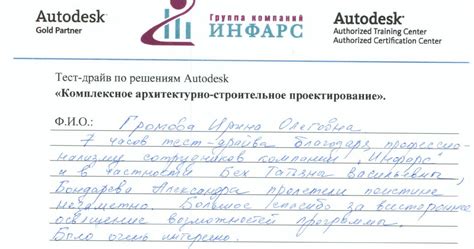 Autodesk®
Gold Partner
Группа компаний
ИНФАРС
Autodesk®
Authorized Training Center
Authorized Certification Center
Тест-драйв по решениям Autodesk
«Комплексное архитектурно-строительное проектирование».
Ф.И.О.: Громова Ирина Олеговна
7 часов тест-драйва благодаря профессио-
нализму сотрудников компании „Инфарс"
и в частности Бех Татьяна Васильевны,
Бондарева Александра пролетели поистине
незаметно. Большое спасибо за всестороннее
освещение возможностей программы.
Было очень интересно.